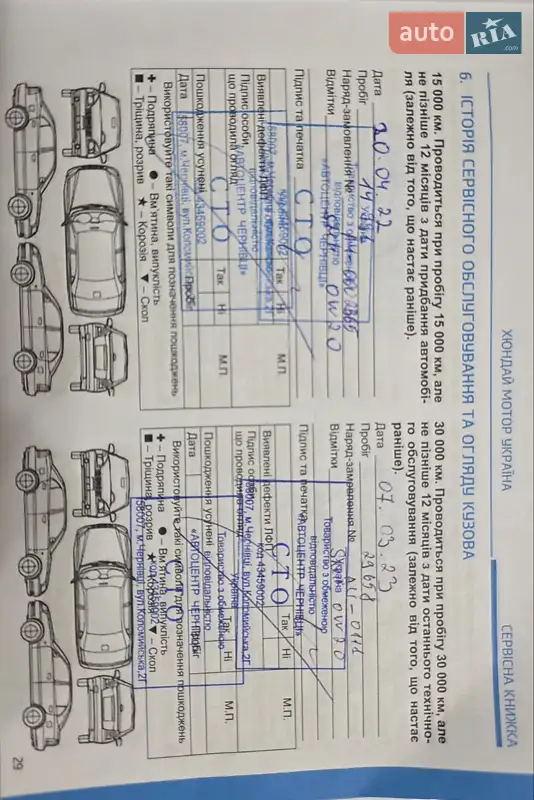 auto RIA .com
ХЮНДАЙ МОТОР УКРАЇНА
СЕРВІСНА КНИЖКА
6. ІСТОРІЯ СЕРВІСНОГО ОБСЛУГОВУВАННЯ ТА ОГЛЯДУ КУЗОВА
15 000 км. Проводиться при пробігу 15 000 км, але
не пізніше 12 місяців з дати придбання автомобі-
ля (залежно від того, що настає раніше).
Дата 20.04.22
Пробіг
Наряд-замовлення №
Відмітки 0W20
Підпис та печатка
СТО
«АВТОЦЕНТР ЧЕРНІВЦІ»
Виявлені дефекти ЛФП Так Ні
Підпис особи,
що проводила огляд М.П.
Пошкодження усунені Так Ні
Дата Пробіг М.П.
58007, м.Чернівці, вул.Коломийська,2Г
код 43459002
Використовуйте такі символи для позначення пошкоджень
✚ – Подряпина ● – Вм'ятина, випуклість
■ – Тріщина, розрив ★ – Корозія ▼ – Скол
30 000 км. Проводиться при пробігу 30 000 км, але
не пізніше 12 місяців з дати останнього технічно-
го обслуговування (залежно від того, що настає
раніше).
Дата 07.03.23
Пробіг
Наряд-замовлення №
Відмітки 0W20
Підпис та печатка
Україна
Товариство з обмеженою
відповідальністю
«АВТОЦЕНТР ЧЕРНІВЦІ»
СТО
код 43459002
58007, м.Чернівці, вул.Коломийська,2Г
Виявлені дефекти ЛФП Так Ні
Підпис особи,
що проводила огляд М.П.
Пошкодження усунені Так Ні
Дата Пробіг М.П.
Україна
Товариство з обмеженою
відповідальністю
«АВТОЦЕНТР ЧЕРНІВЦІ»
код 43459002
58007, м.Чернівці, вул.Коломийська,2Г
Використовуйте такі символи для позначення пошкоджень
✚ – Подряпина ● – Вм'ятина, випуклість
■ – Тріщина, розрив ★ – Корозія ▼ – Скол
29